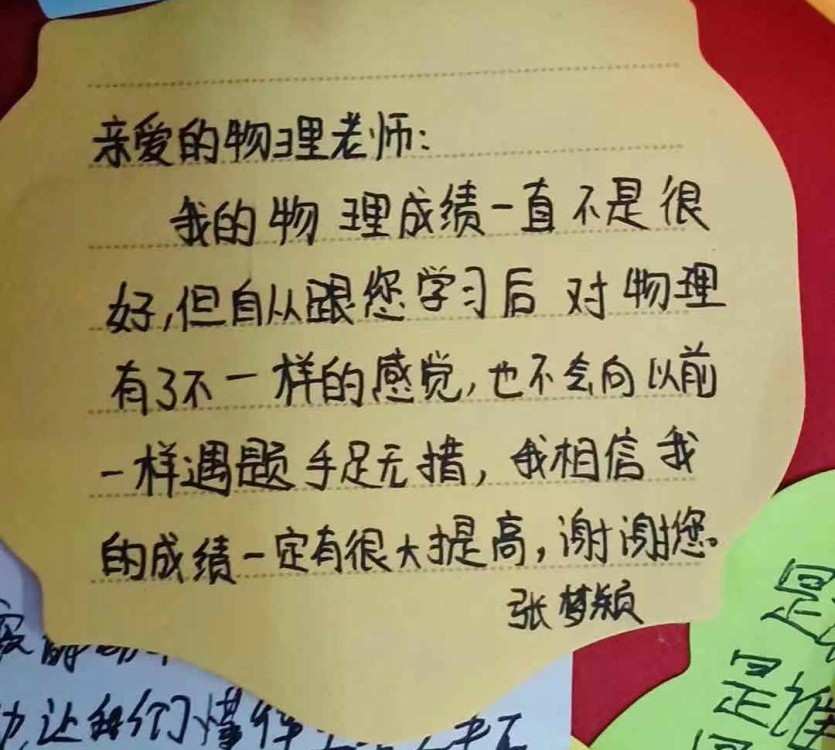 亲爱的物理老师:
我的物理成绩一直不是很
好,但自从跟您学习后 对物理
有了不一样的感觉,也不会向以前
一样遇题手足无措,我相信我
的成绩一定有很大提高,谢谢您。
张梦颖
让我们懂得